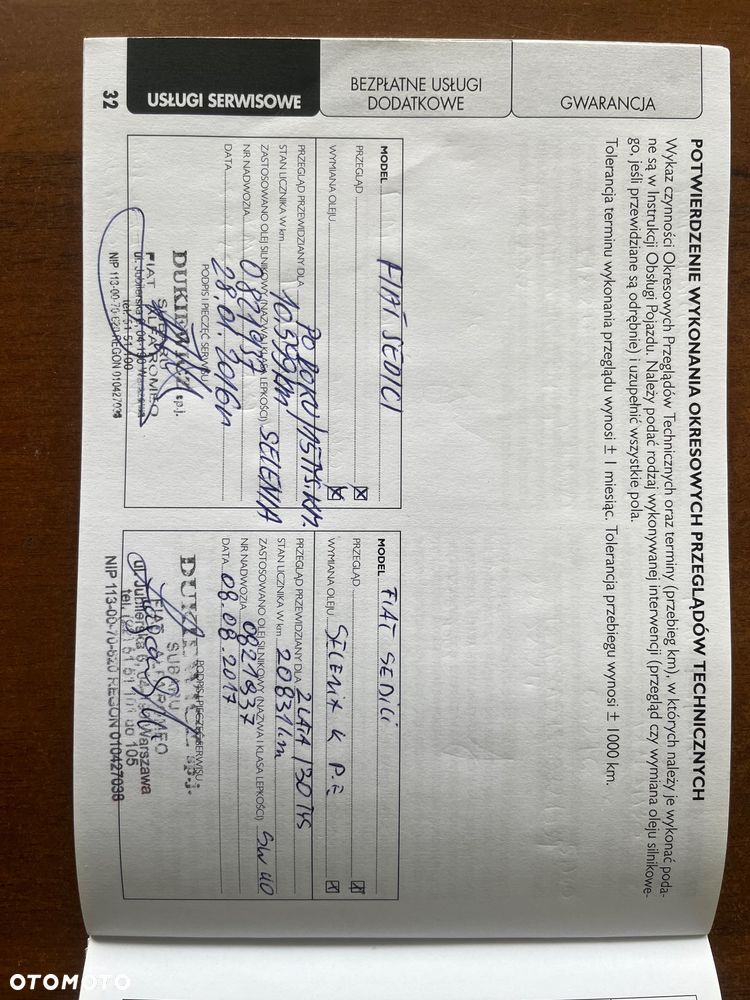 GWARANCJA
BEZPŁATNE USŁUGI
DODATKOWE
USŁUGI SERWISOWE
32
POTWIERDZENIE WYKONANIA OKRESOWYCH PRZEGLĄDÓW TECHNICZNYCH
Wykaz czynności Okresowych Przeglądów Technicznych oraz terminy (przebieg km), w których należy je wykonać poda-
ne są w Instrukcji Obsługi Pojazdu. Należy podać rodzaj wykonywanej interwencji (przegląd czy wymiana oleju silnikowe-
go, jeśli przewidziane są odrębnie) i uzupełnić wszystkie pola.
Tolerancja terminu wykonania przeglądu wynosi ± 1 miesiąc. Tolerancja przebiegu wynosi ± 1000 km.
MODEL FIAT SEDICI
PRZEGLĄD
WYMIANA OLEJU
PRZEGLĄD PRZEWIDZIANY DLA PO ROKU/15TYS.KM.
STAN LICZNIKA W km 10599km
ZASTOSOWANO OLEJ SILNIKOWY (NAZWA I KLASA LEPKOŚCI) SELENIA
NR NADWOZIA 0821937
DATA 28.01.2016r
PODPIS I PIECZĘĆ SERWISU
DUKIEWICZ sp.j.
FIAT ALFA ROMEO
SUBARU
ul. Jubilerska 6, 04-190 Warszawa
NIP 113-00-70-620 REGON 010427038
MODEL FIAT SEDICI
PRZEGLĄD
WYMIANA OLEJU SELENIA K P.E
PRZEGLĄD PRZEWIDZIANY DLA 2 LATA /30 TYS
STAN LICZNIKA W km 20831km
ZASTOSOWANO OLEJ SILNIKOWY (NAZWA I KLASA LEPKOŚCI) 5W40
NR NADWOZIA 0821937
DATA 08.08.2017
PODPIS I PIECZĘĆ SERWISU
DUKIEWICZ sp.j.
SUBARU
ul. Jubilerska 6, Warszawa
NIP 113-00-70-620 REGON 010427038
OTOMOTO